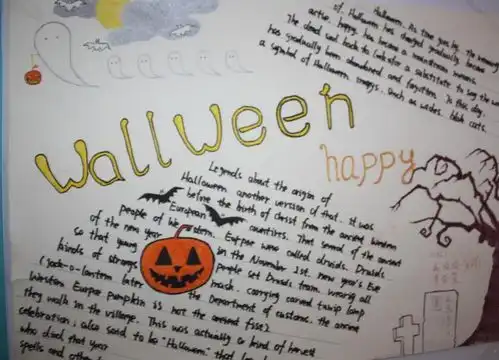 Halloween. As time goes by, the meaning
of Halloween has changed gradually, become
active, happy has become a mainstream
The dead and back to look for a substitute to say the
has gradually been abandoned and forgotten. To this day,
a symbol of Halloween images, such as witches, black cats,
Wallween
happy
Legends about the origin of
Halloween another version of that. it was
before the birth of christ from the ancient western
European countires. That several of the ancient
people of western Europe were called druids. Druids
of the new year in the November 1st, new year's Eve
so that young people set Druids team, wearing all
kinds of strange mask. carrying carved turnip lamp
(jack-o-lantern later the Department of customs, the ancient
Western Europe pumpkin is not the ancient
they walk in the village. This was actually a kind of harvest
celebration; also said to be "Halloween", that
who died that year
spells and other